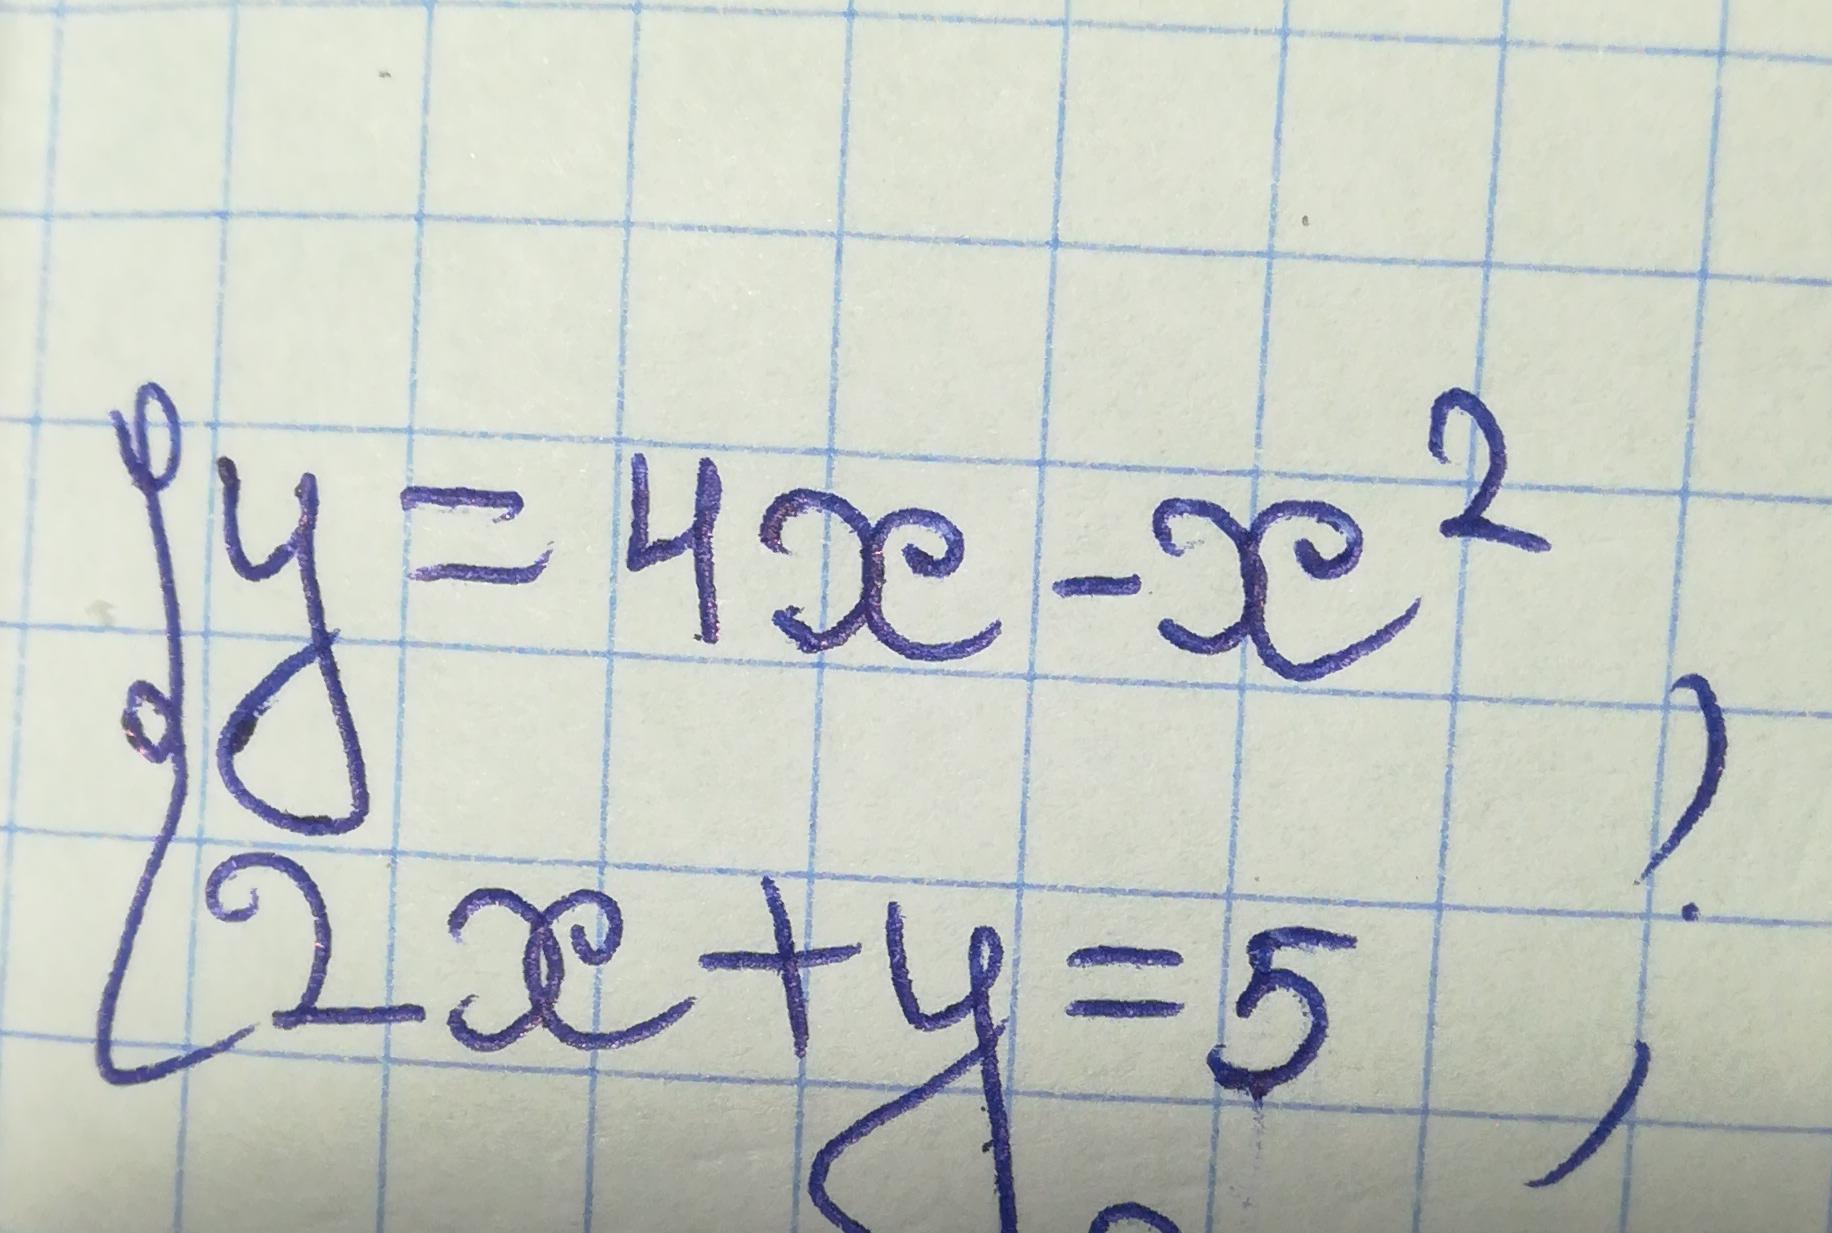 { y = 4x - x²
2x + y = 5